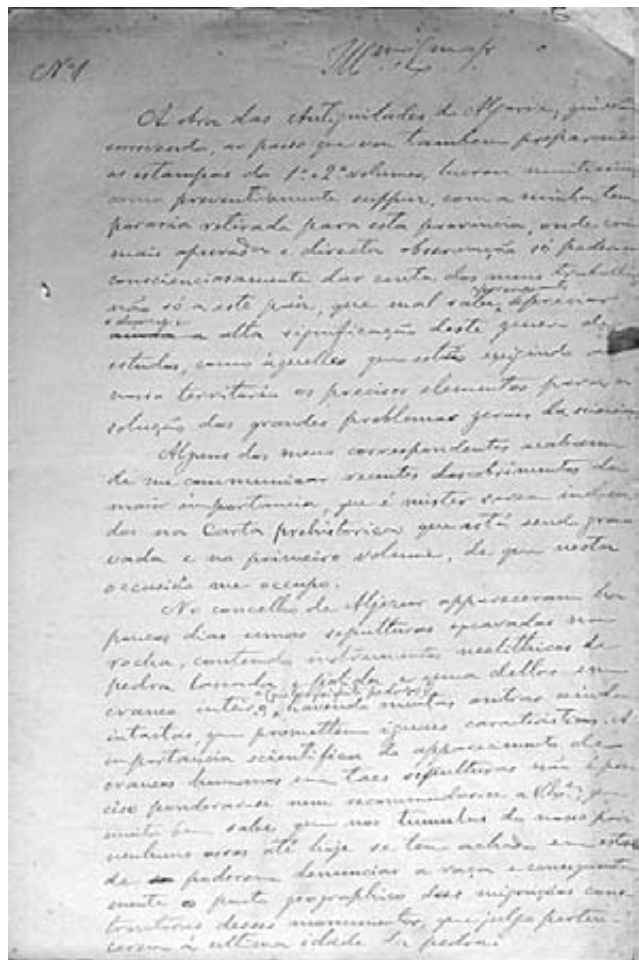 Nº 1
A obra das Antiguidades do Algarve, que
escrevendo, ao passo que vou tambem preparando
as estampas do 1º e 2º volumes,
como preventivamente suppuz, com a minha tem
poraria retirada para esta provincia, onde com
mais apurada e directa observação só poderei
conscienciosamente dar conta dos meus trabalhos
não só a este paiz, que mal sabe apreciar
a alta significação deste genero de
estudos, como áquelles que estão exigindo ao
nosso territorio os precisos elementos para a
solução dos grandes problemas geraes da sciencia
Alguns dos meus correspondentes acabaram
de me communicar recentes descobrimentos da
maior importancia, que é mister sejam indica
dos na Carta prehistorica que está sendo gra
vada e no primeiro volume, de que nesta
occasião me occupo.
No concelho de Aljezur appareceram ha
poucos dias umas sepulturas excavadas na
rocha, contendo instrumentos neolithicos de
pedra lascada e polida e uma dellas um
craneo inteiro, havendo muitas outras ainda
intactas que promettem iguaes caracteristicas. A
importancia scientifica do apparecimento de
craneos humanos em taes sepulturas não é pre
ciso ponderar-se nem recommendar-se a V. Exª, que
muito bem sabe que nos tumulos do nosso paiz
nenhuns ossos até hoje se tem achado em estado
de poderem denunciar a raça e consequente
mente o ponto geographico das migrações cons
tructoras desses monumentos, que julgo perten
cerem á ultima idade da pedra.